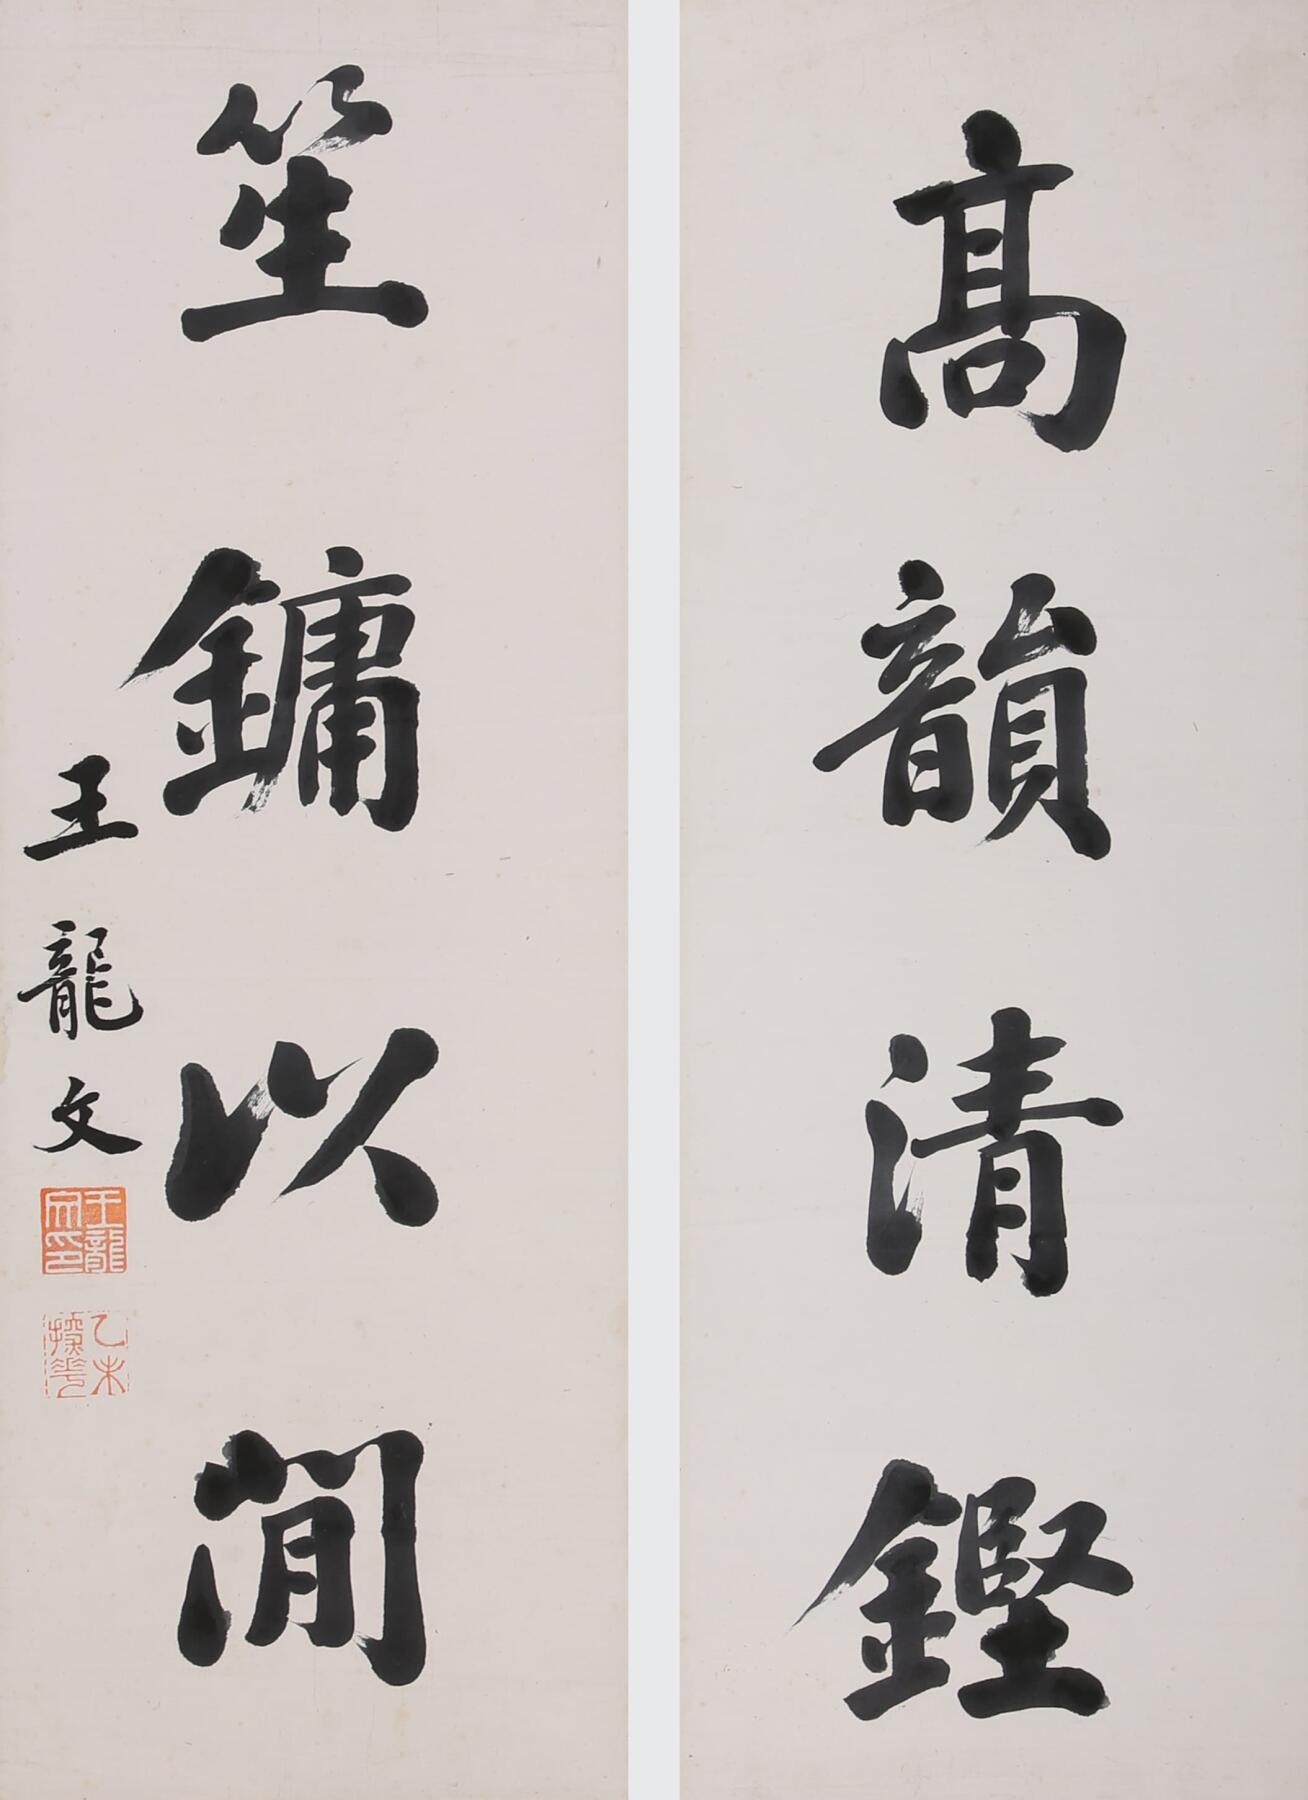 髙韻清鏗
笙鏞以閒
王龍文
王龍文印
乙未探花